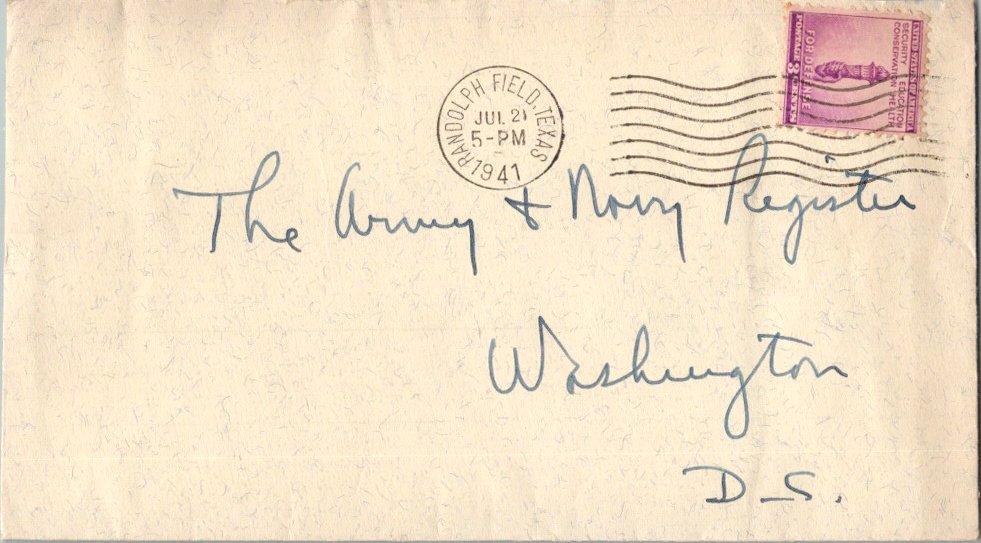 RANDOLPH FIELD, TEXAS
JUL 21
5-PM
1941
UNITED STATES OF AMERICA
SECURITY EDUCATION
CONSERVATION HEALTH
FOR DEFENSE
POSTAGE 3 CENTS
The Army & Navy Register
Washington
D.S.